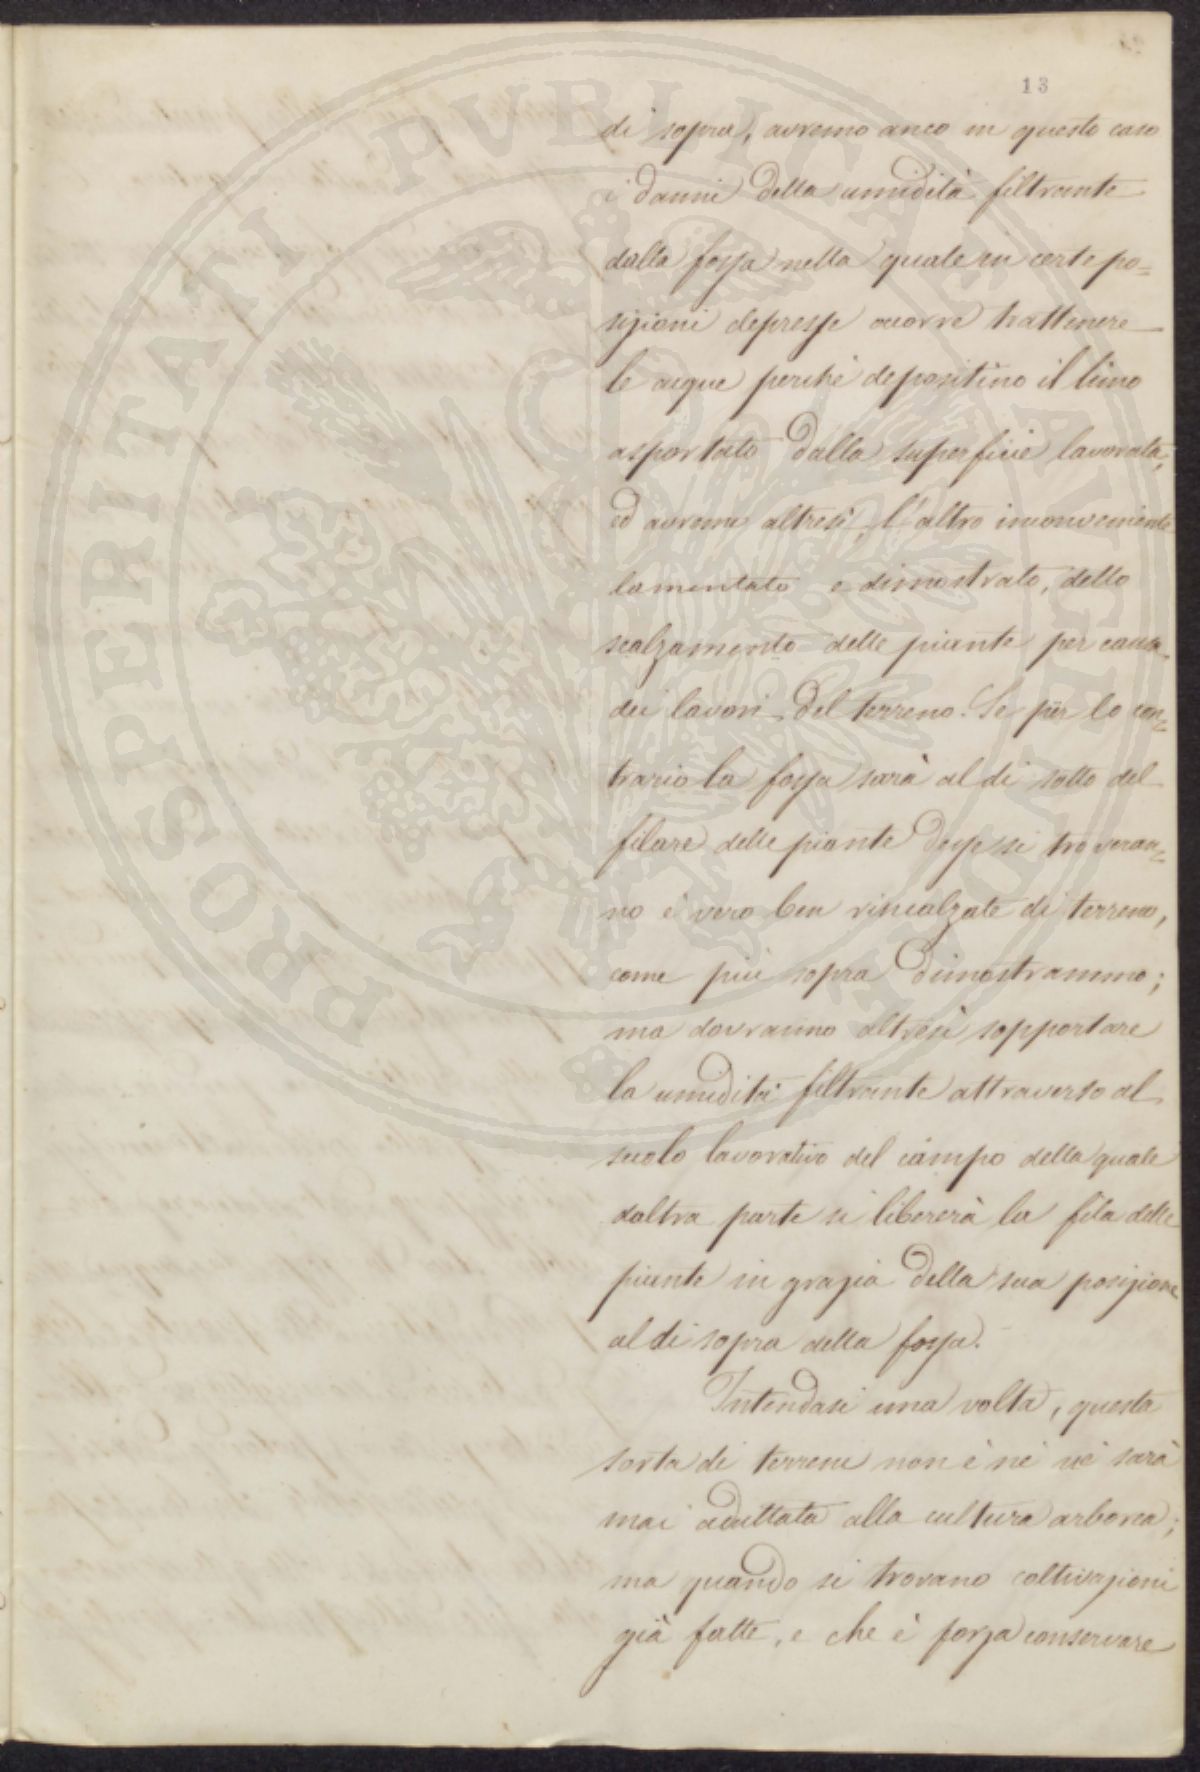 13
di sopra, avremo anco in questo caso
i danni della umidità filtrante
dalla fossa nella quale in certe po=
sizioni depresse ocorre trattenere
le acque perchè depositino il limo
asportato dalla superficie lavorata,
ed avremo altresì, l'altro inconveniente
lamentato e dimostrato, dello
scalzamento delle piante per causa
dei lavori del terreno. Se per lo con=
trario la fossa sarà al di sotto del
filare delle piante desse si troveran=
no è vero ben rincalzate di terreno,
come più sopra dimostrammo;
ma dovranno altresì sopportare
la umidità filtrante attraverso al
suolo lavorativo del campo della quale
daltra parte si libererà la fila delle
piante in grazia della sua posizione
al di sopra della fossa.
Intendasi una volta, questa
sorta di terreni non è nè nè sarà
mai adattata alla cultura arborea;
ma quando si trovano coltivazioni
già fatte, e che è forza conservare
PROSPERITATI PVBLICAE AVGENDAE